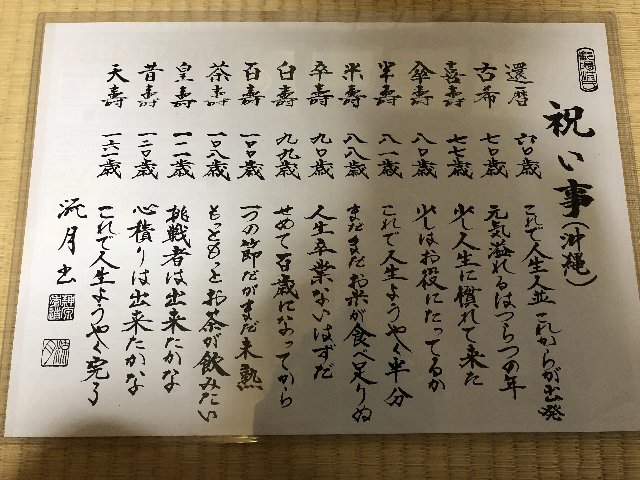 祝い事(沖縄)
還暦 六〇歳 これで人生人並これからが出発
古希 七〇歳 元気溢れるはつらつの年
喜壽 七七歳 少し人生に慣れて来た
傘壽 八〇歳 少しはお役にたってるか
半壽 八一歳 これで人生ようやく半分
米壽 八八歳 まだまだお米が食べ足りぬ
卒壽 九〇歳 人生卒業ないはずだ
白壽 九九歳 せめて百歳になってから
百壽 一〇〇歳 一つの節だがまだ未熟
茶壽 一〇八歳 もっともっとお茶が飲みたい
皇壽 一一一歳 挑戦者は出来たかな
昔壽 一二〇歳 心積りは出来たかな
天壽 一六一歳 これで人生ようやく完了
流月書